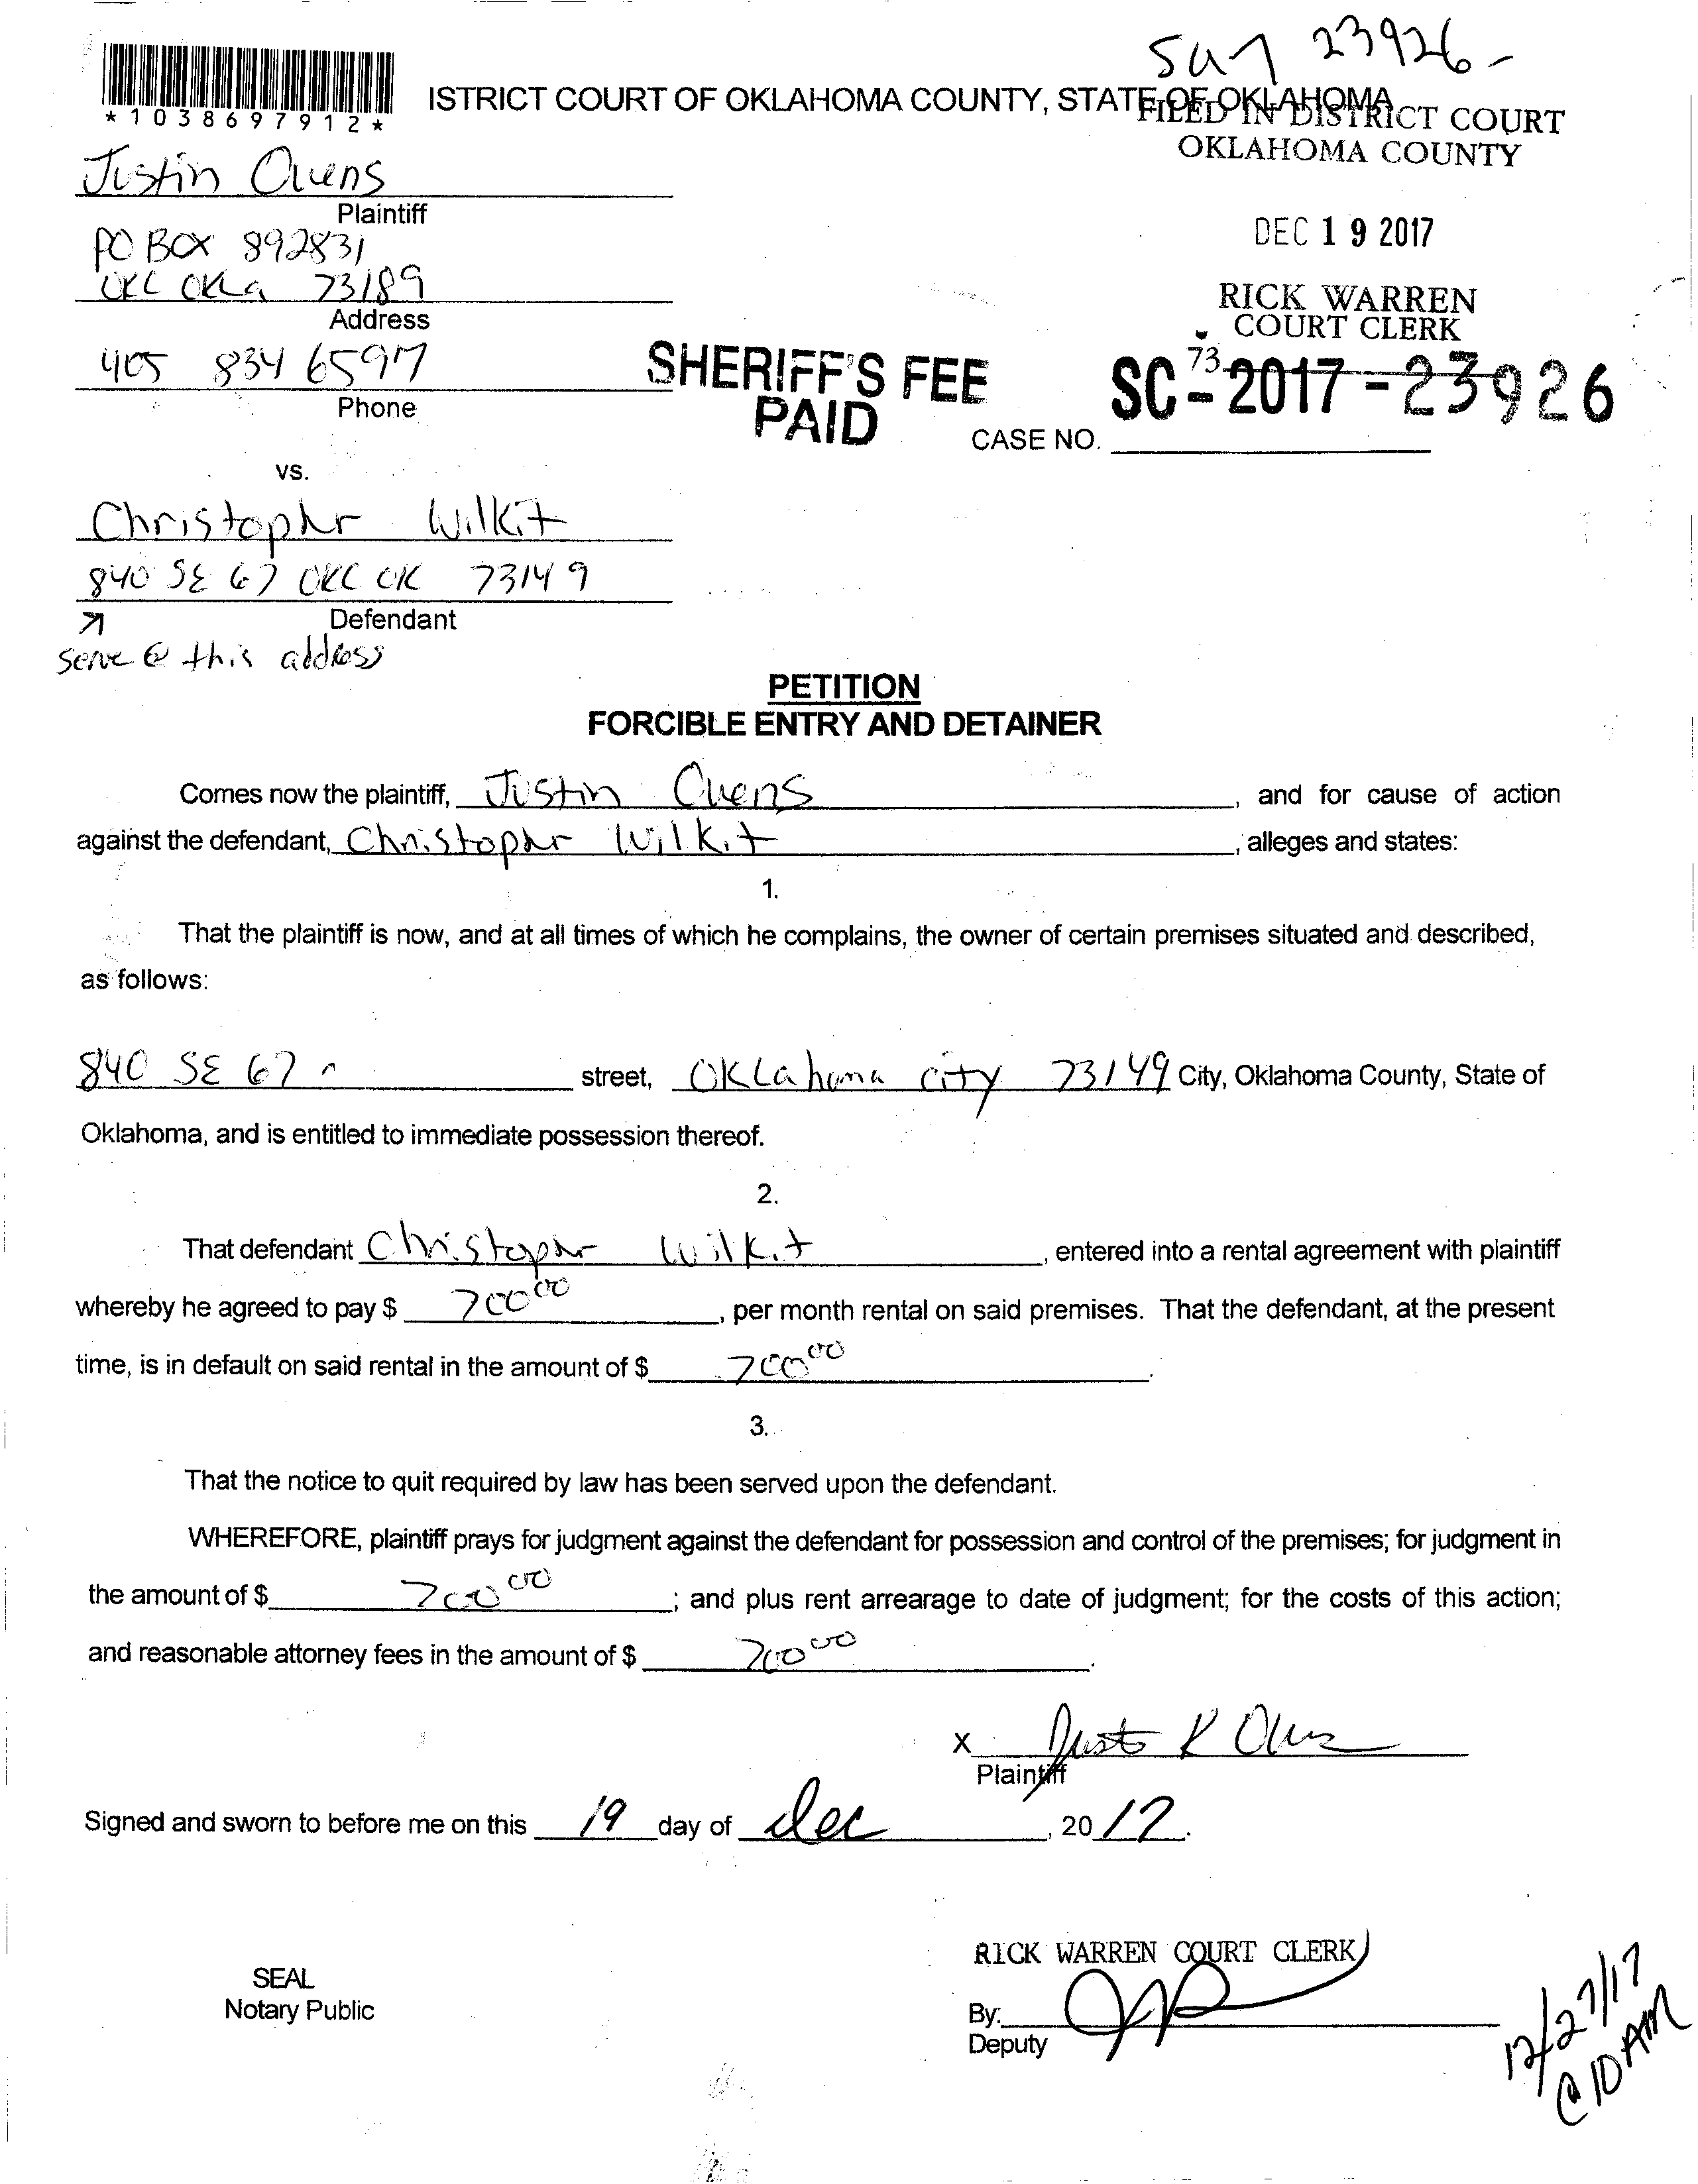 23926-
*1038697912*
ISTRICT COURT OF OKLAHOMA COUNTY, STATE OF OKLAHOMA
FILED IN DISTRICT COURT
OKLAHOMA COUNTY
Justin Owens
Plaintiff
PO BOX 892831
OKC OKLa 73189
Address
DEC 19 2017
RICK WARREN
COURT CLERK
73
405 834 6597
Phone
SHERIFF'S FEE
PAID
CASE NO. SC-2017-23926
vs.
Christophr Wilkit
840 SE 67 OKC OK 73149
Defendant
serve @ this address
PETITION
FORCIBLE ENTRY AND DETAINER
Comes now the plaintiff, Justin Owens, and for cause of action
against the defendant, Christophr Wilkit, alleges and states:
1.
That the plaintiff is now, and at all times of which he complains, the owner of certain premises situated and described,
as follows:
840 SE 67 street, OKLahoma city 73149 City, Oklahoma County, State of
Oklahoma, and is entitled to immediate possession thereof.
2.
That defendant Christophr Wilkit, entered into a rental agreement with plaintiff
whereby he agreed to pay $ 700 00, per month rental on said premises. That the defendant, at the present
time, is in default on said rental in the amount of $ 700 00.
3.
That the notice to quit required by law has been served upon the defendant.
WHEREFORE, plaintiff prays for judgment against the defendant for possession and control of the premises; for judgment in
the amount of $ 700 00; and plus rent arrearage to date of judgment; for the costs of this action;
and reasonable attorney fees in the amount of $ 700 00.
X Justin R Owens
Plaintiff
Signed and sworn to before me on this 19 day of dec, 2017.
RICK WARREN COURT CLERK
SEAL
Notary Public
By:
Deputy
12/27/17
@ 10 AM